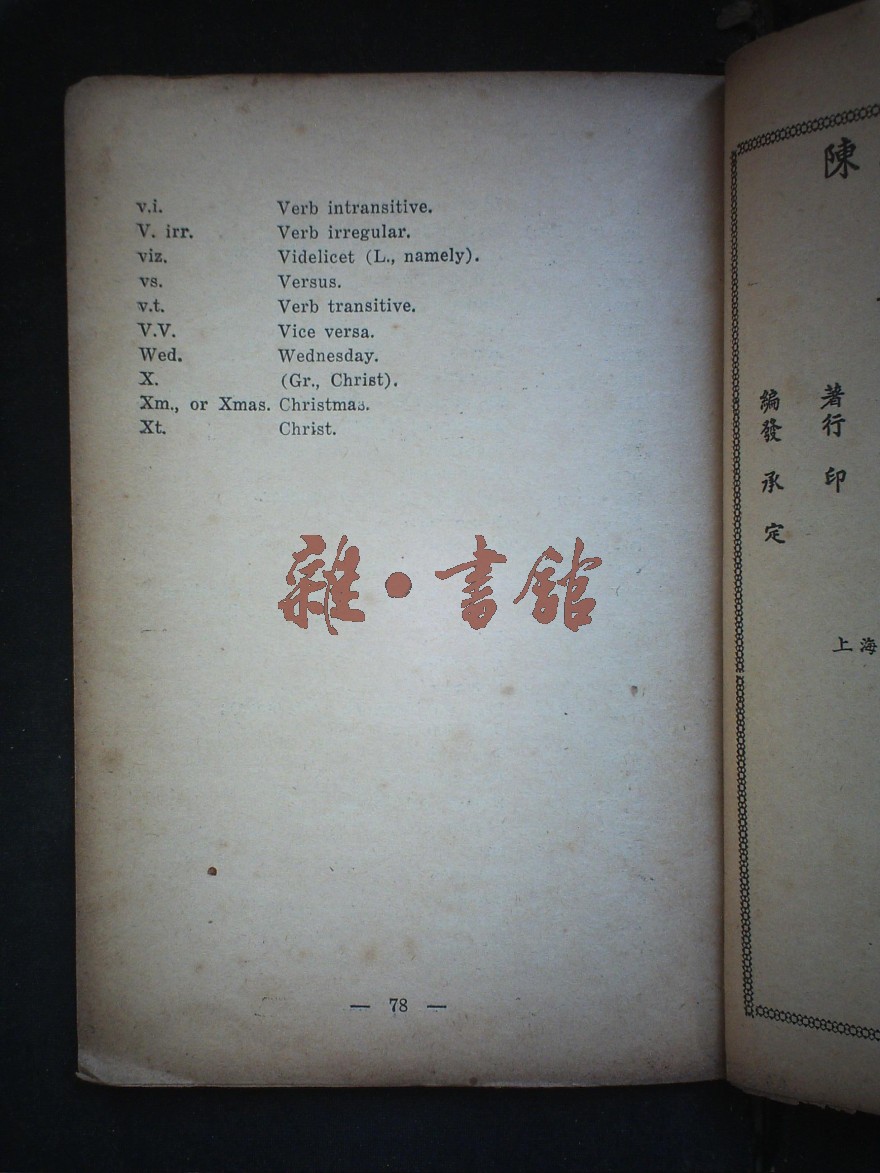 v.i. Verb intransitive.
V. irr. Verb irregular.
viz. Videlicet (L., namely).
vs. Versus.
v.t. Verb transitive.
V.V. Vice versa.
Wed. Wednesday.
X. (Gr., Christ).
Xm., or Xmas. Christmas.
Xt. Christ.
雜·書館
— 78 —
陳
著行印
編發承定
上海